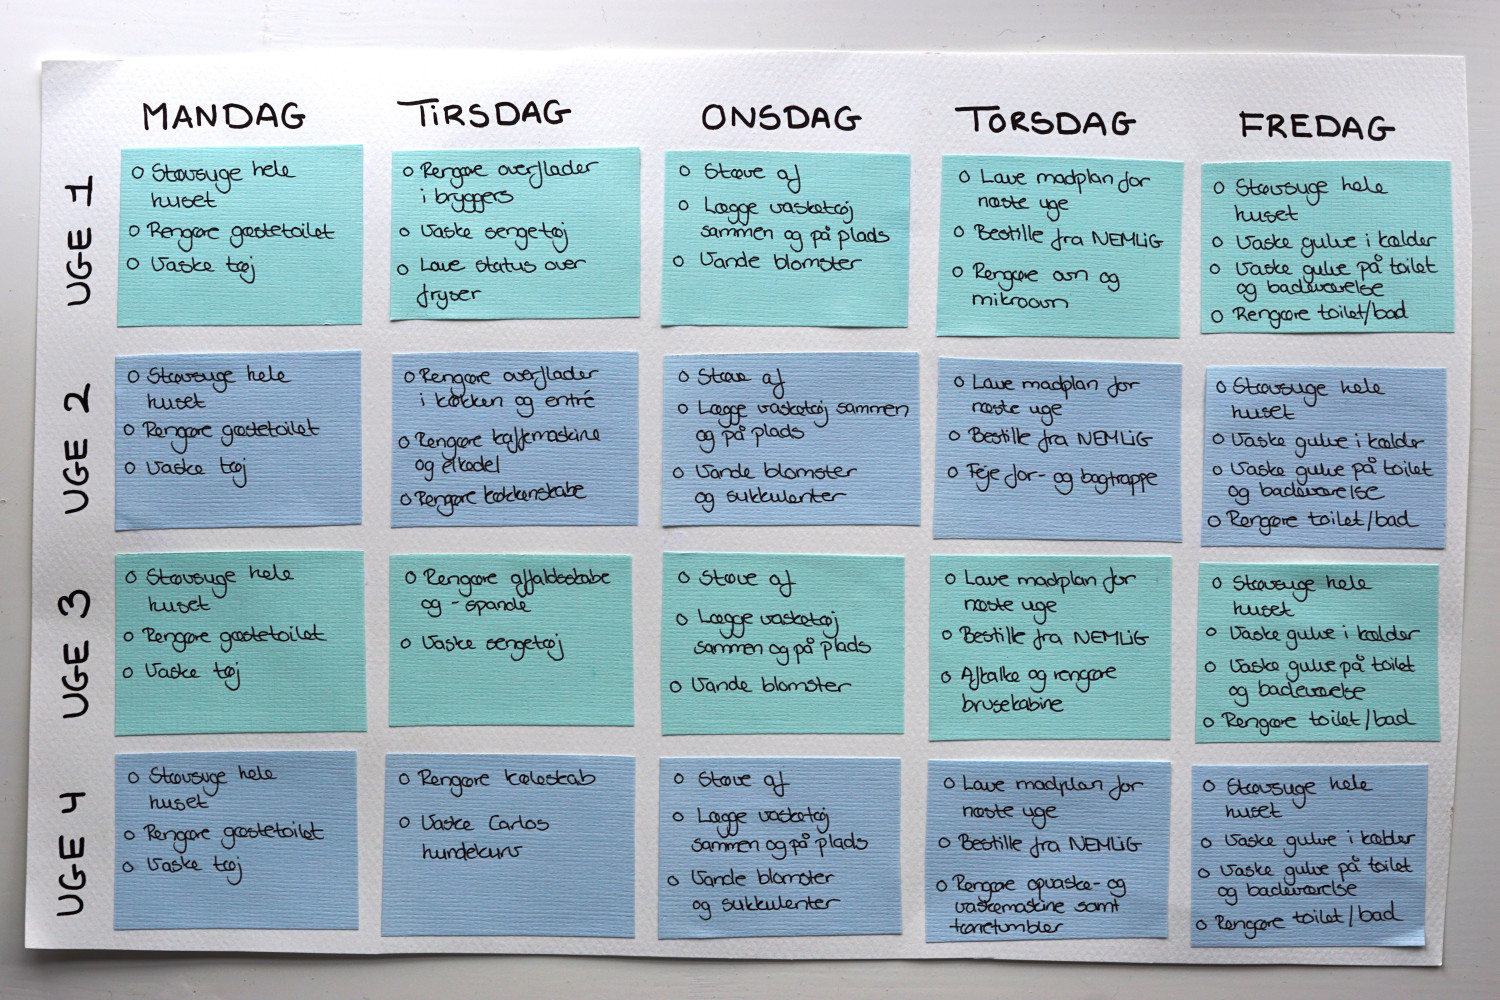 MANDAG TIRSDAG ONSDAG TORSDAG FREDAG
UGE 1
o Støvsuge hele
huset
o Rengøre gæstetoilet
o Vaske tøj
o Rengøre overflader
i bryggers
o Vaske sengetøj
o Lave status over
fryser
o Støve af
o Lægge vasketøj
sammen og på plads
o Vande blomster
o Lave madplan for
næste uge
o Bestille fra NEMLIG
o Rengøre ovn og
mikroovn
o Støvsuge hele
huset
o Vaske gulve i kælder
o Vaske gulve på toilet
og badeværelse
o Rengøre toilet/bad
UGE 2
o Støvsuge hele
huset
o Rengøre gæstetoilet
o Vaske tøj
o Rengøre overflader
i køkken og entré
o Rengøre kaffemaskine
og elkedel
o Rengøre køkkenskabe
o Støve af
o Lægge vasketøj sammen
og på plads
o Vande blomster
og sukkulenter
o Lave madplan for
næste uge
o Bestille fra NEMLIG
o Feje for- og bagtrappe
o Støvsuge hele
huset
o Vaske gulve i kælder
o Vaske gulve på toilet
og badeværelse
o Rengøre toilet/bad
UGE 3
o Støvsuge hele
huset
o Rengøre gæstetoilet
o Vaske tøj
o Rengøre affaldsskabe
og -spande
o Vaske sengetøj
o Støve af
o Lægge vasketøj
sammen og på plads
o Vande blomster
o Lave madplan for
næste uge
o Bestille fra NEMLIG
o Afkalke og rengøre
brusekabine
o Støvsuge hele
huset
o Vaske gulve i kælder
o Vaske gulve på toilet
og badeværelse
o Rengøre toilet/bad
UGE 4
o Støvsuge hele
huset
o Rengøre gæstetoilet
o Vaske tøj
o Rengøre køleskab
o Vaske Carlos
hundekurv
o Støve af
o Lægge vasketøj
sammen og på plads
o Vande blomster
og sukkulenter
o Lave madplan for
næste uge
o Bestille fra NEMLIG
o Rengøre opvaske- og
vaskemaskine samt
tørretumbler
o Støvsuge hele
huset
o Vaske gulve i kælder
o Vaske gulve på toilet
og badeværelse
o Rengøre toilet/bad